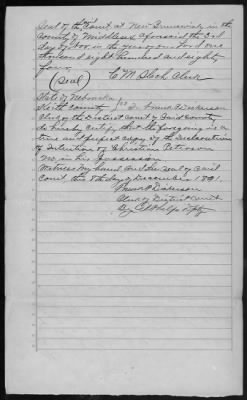 Seal of the Court at New Brunswick in the
County of Middlesex aforesaid the 3rd
day of Nov in the year of our Lord one
thousand eight hundred and eighty
four
(Seal)
State of Nebraska
Keith County } ss I Dickinson
Clerk of the District Court of said County
do hereby certify that the foregoing is a
true and perfect copy of the Declaration
of Intention of Christian Peterson
now in his possession
Witness my hand and the seal of said
Court this 8th day of December 1891.
Dickinson
Clerk of District Court
By Phelps Dpty